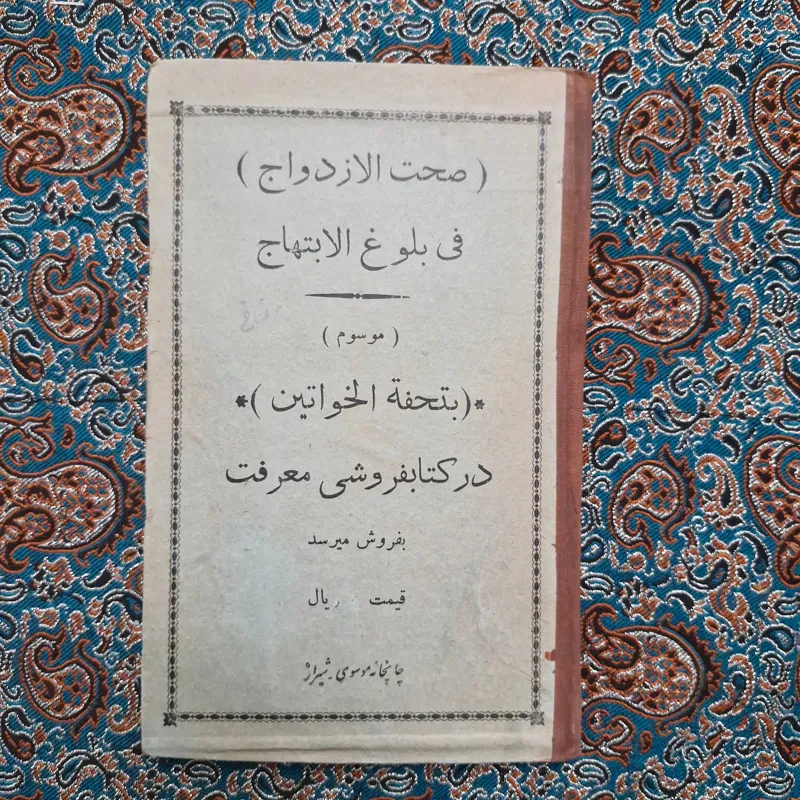 (صحت الازدواج)
فی بلوغ الابتهاج
(موسوم)
*(بتحفة الخواتین)*
در کتابفروشی معرفت
بفروش میرسد
قیمت ریال
چاپخانه موسوی ـ شیراز